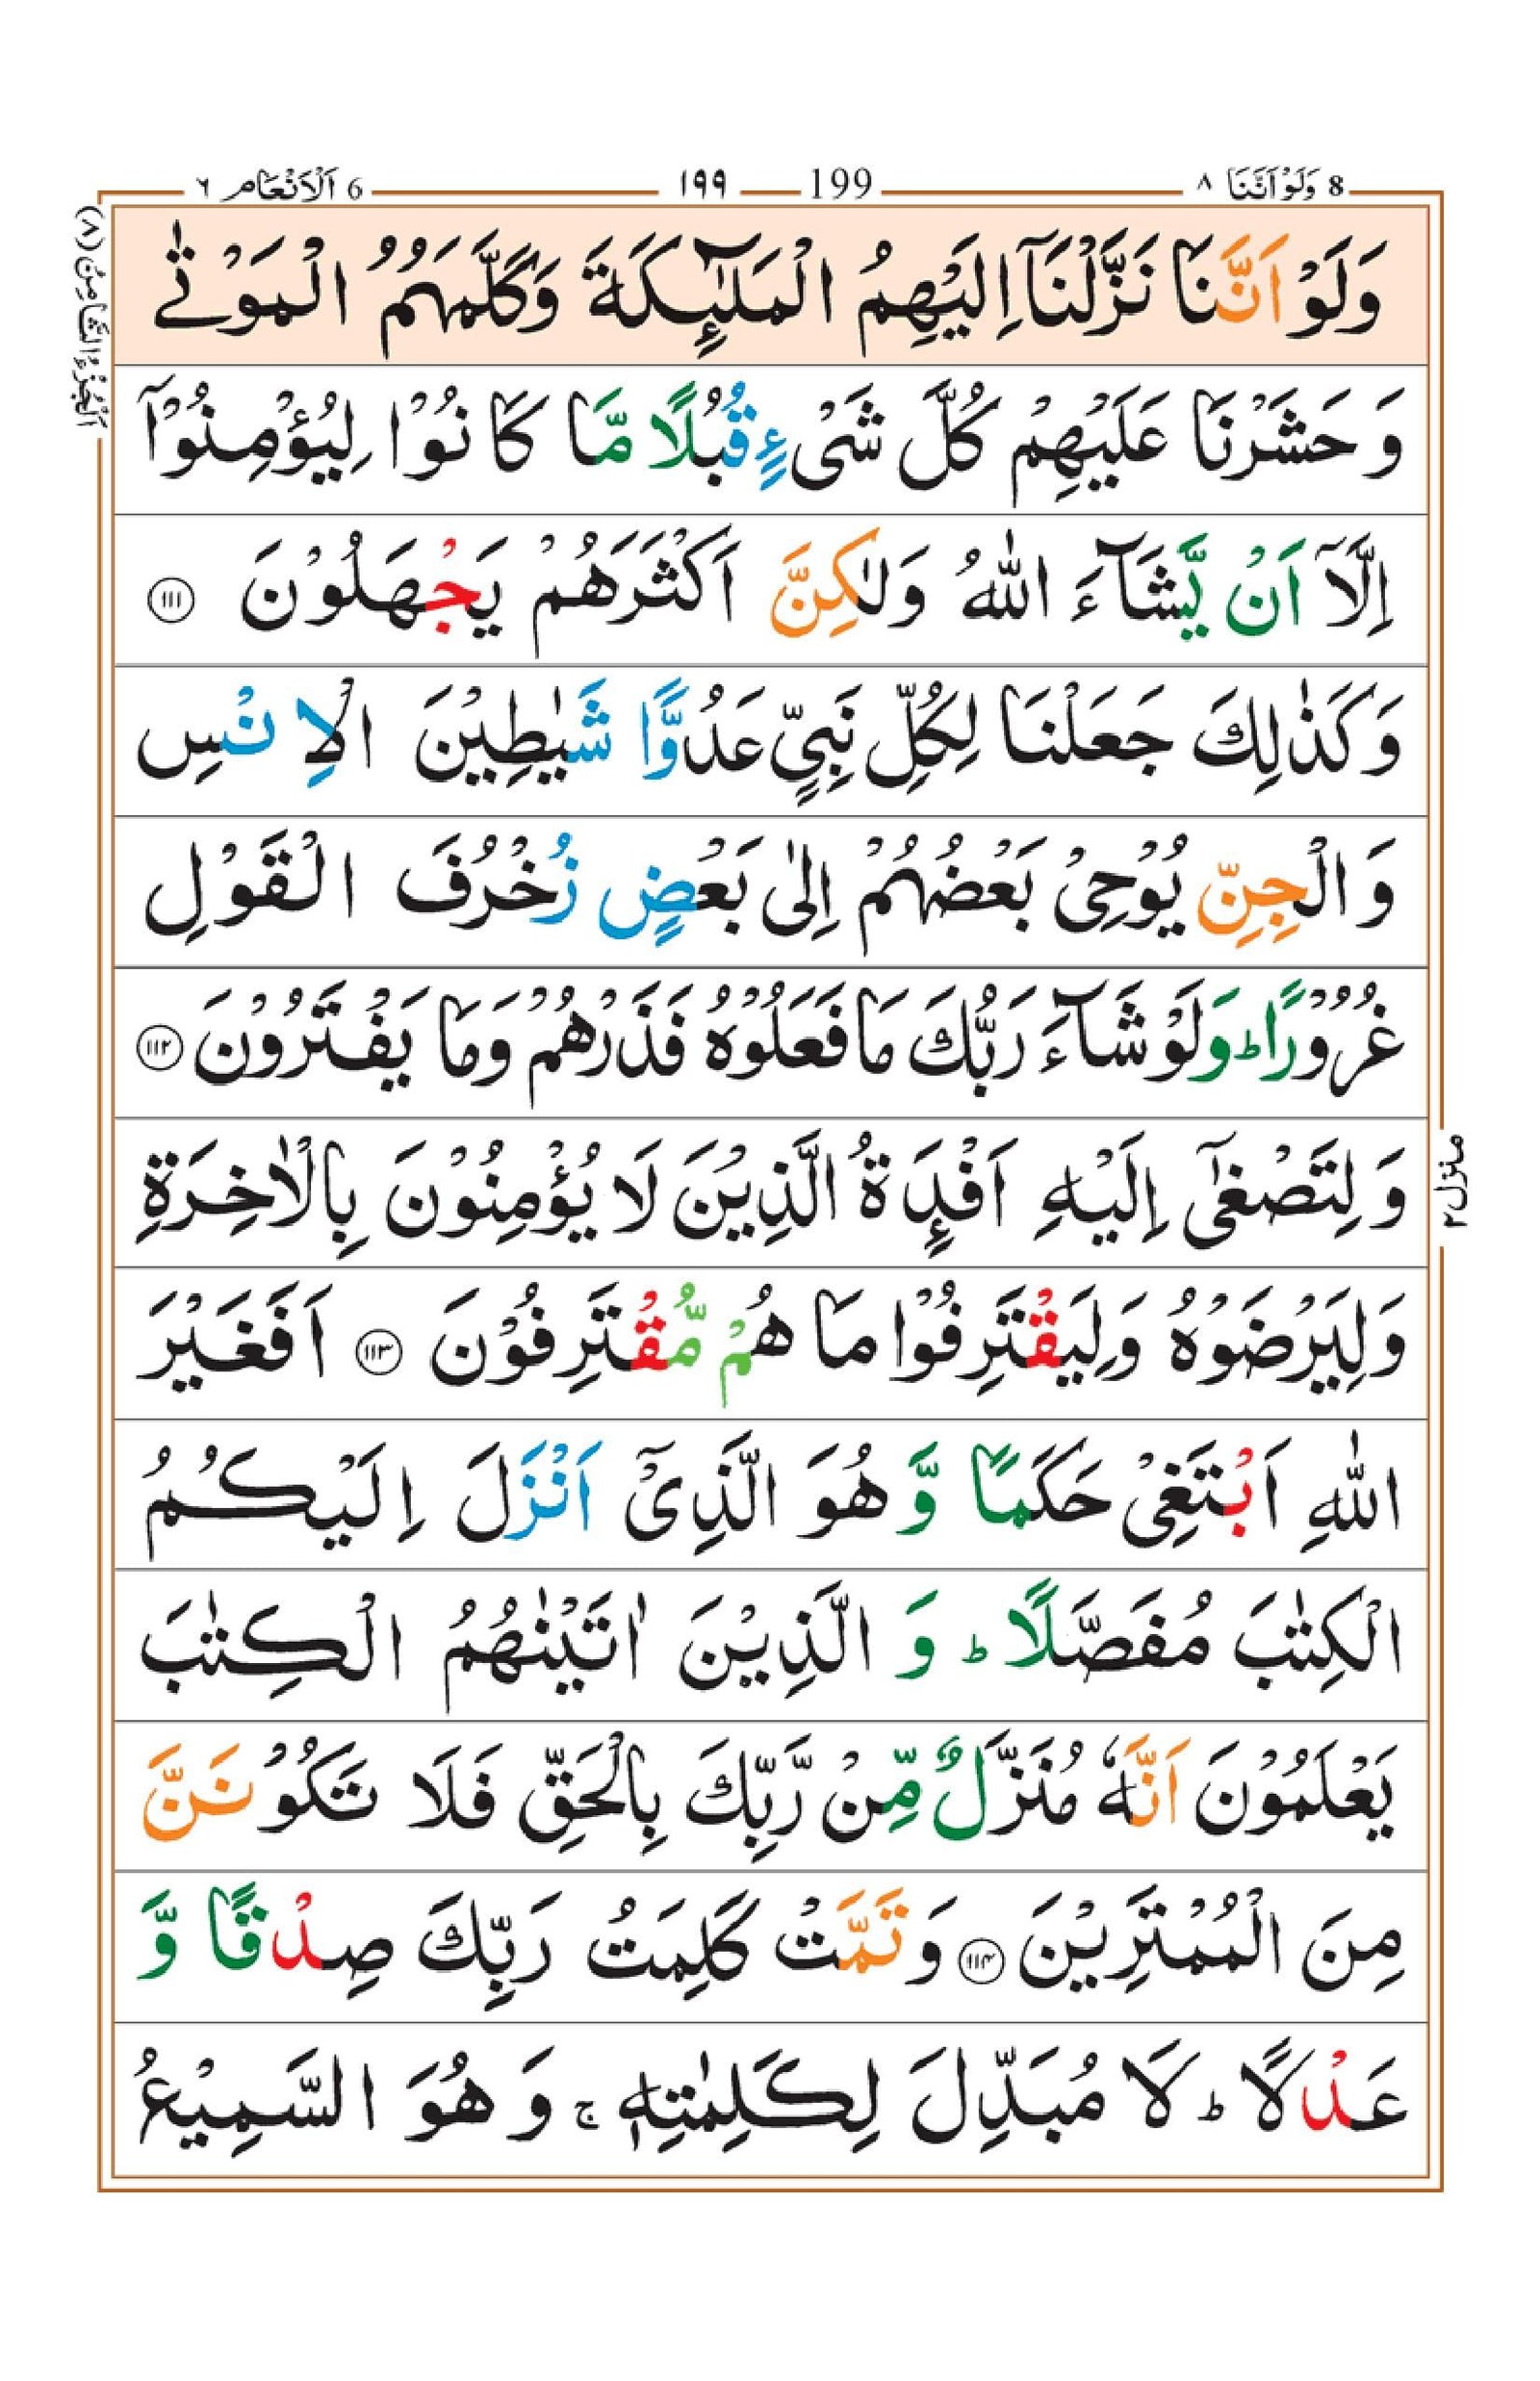 8 وَلَوْ اَنَّنَا ٨ 199 ١٩٩ 6 اَلْاَنْعَام ٦
اَلْجُزْءُ الثَّامِنُ (٨)
وَلَوْ اَنَّنَا نَزَّلْنَاۤ اِلَيْهِمُ الْمَلٰٓئِكَةَ وَكَلَّمَهُمُ الْمَوْتٰى
وَ حَشَرْنَا عَلَيْهِمْ كُلَّ شَىْءٍ قُبُلًا مَّا كَانُوْا لِيُؤْمِنُوْۤا
اِلَّاۤ اَنْ يَّشَآءَ اللّٰهُ وَلٰكِنَّ اَكْثَرَهُمْ يَجْهَلُوْنَ ۝١١١
وَكَذٰلِكَ جَعَلْنَا لِكُلِّ نَبِىٍّ عَدُوًّا شَيٰطِيْنَ الْاِنْسِ
وَالْجِنِّ يُوْحِىْ بَعْضُهُمْ اِلٰى بَعْضٍ زُخْرُفَ الْقَوْلِ
غُرُوْرًا ؕ وَلَوْ شَآءَ رَبُّكَ مَا فَعَلُوْهُ فَذَرْهُمْ وَمَا يَفْتَرُوْنَ ۝١١٢
وَلِتَصْغٰۤى اِلَيْهِ اَفْئِدَةُ الَّذِيْنَ لَا يُؤْمِنُوْنَ بِالْاٰخِرَةِ
وَلِيَرْضَوْهُ وَلِيَقْتَرِفُوْا مَا هُمْ مُّقْتَرِفُوْنَ ۝١١٣ اَفَغَيْرَ
اللّٰهِ اَبْتَغِىْ حَكَمًا وَّهُوَ الَّذِىْۤ اَنْزَلَ اِلَيْكُمُ
الْكِتٰبَ مُفَصَّلًا ؕ وَالَّذِيْنَ اٰتَيْنٰهُمُ الْكِتٰبَ
يَعْلَمُوْنَ اَنَّهٗ مُنَزَّلٌ مِّنْ رَّبِّكَ بِالْحَقِّ فَلَا تَكُوْنَنَّ
مِنَ الْمُمْتَرِيْنَ ۝١١٤ وَتَمَّتْ كَلِمَتُ رَبِّكَ صِدْقًا وَّ
عَدْلًا ؕ لَا مُبَدِّلَ لِكَلِمٰتِهٖ ۚ وَهُوَ السَّمِيْعُ
منزل ٢